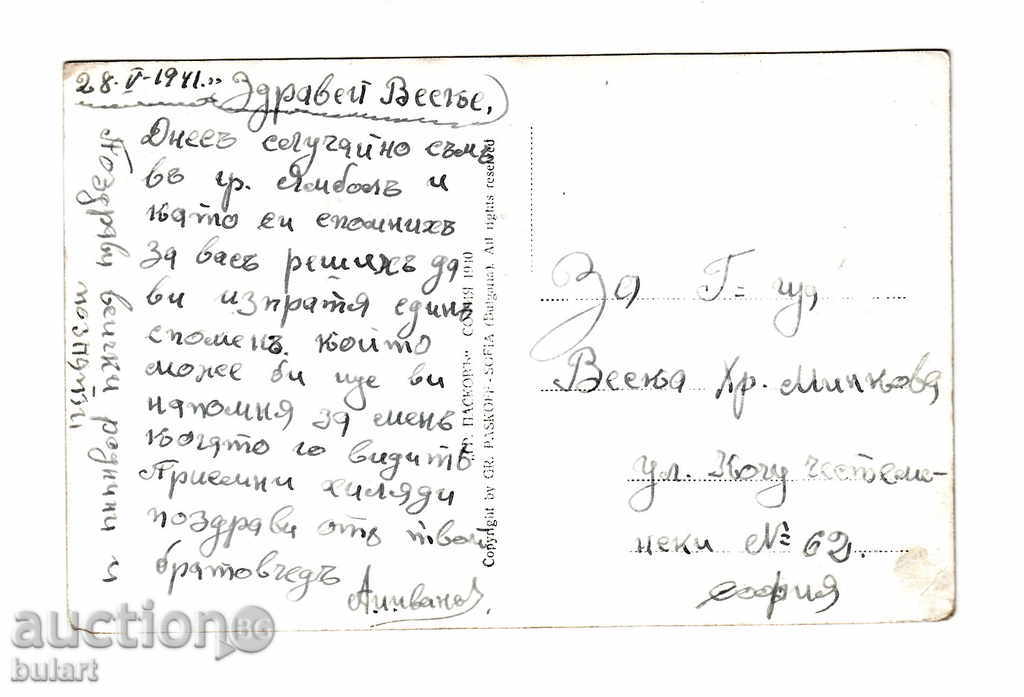 28.V-1941.
Здравей Весье,
Днесъ случайно съмъ
въ гр. Ямболъ и
като си спомнихъ
за васъ решихъ да
ви изпратя единъ
споменъ който
може би ще ви
напомня за менъ
когато го видитъ
Приемни хиляди
поздрави отъ твой
братовчедъ
Поздрави всички роднини и
познати
"ГР. ПАСКОВЪ" СОФИЯ 1940
Copyright by GR. PASKOFF - SOFIA (Bulgaria). All rights reserved
За Г-ца
Весња Хр. Минкова
ул. Кочу Честеме-
неки № 62.
София
auctionBG
bulart